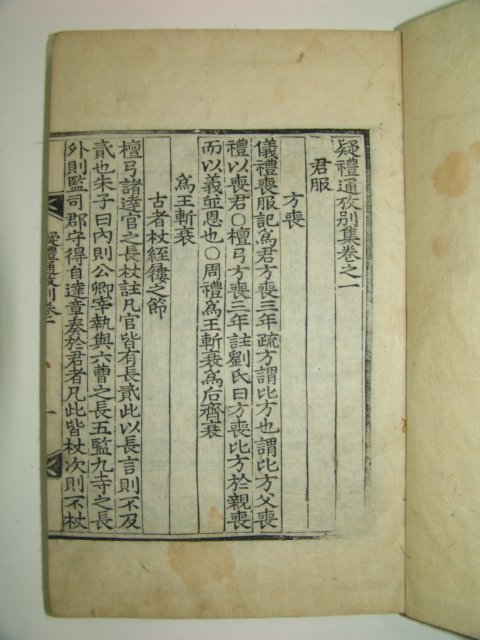 疑禮通攷别集卷之一
君服
方喪
儀禮喪服記爲君方喪三年疏方謂比方也謂比方父喪
禮以喪君○檀弓方喪三年註劉氏曰方喪比方於親喪
而以義並恩也○周禮爲王斬衰爲后齊衰
爲王斬衰
古者杖絰縷之節
檀弓諸達官之長杖註凡官皆有長貳此以長言則不及
貳也朱子曰內則公卿宰執與六曹之長五監九寺之長
外則監司郡守得自達章奏於君者凡此皆杖次則不杖
疑禮通攷别卷一